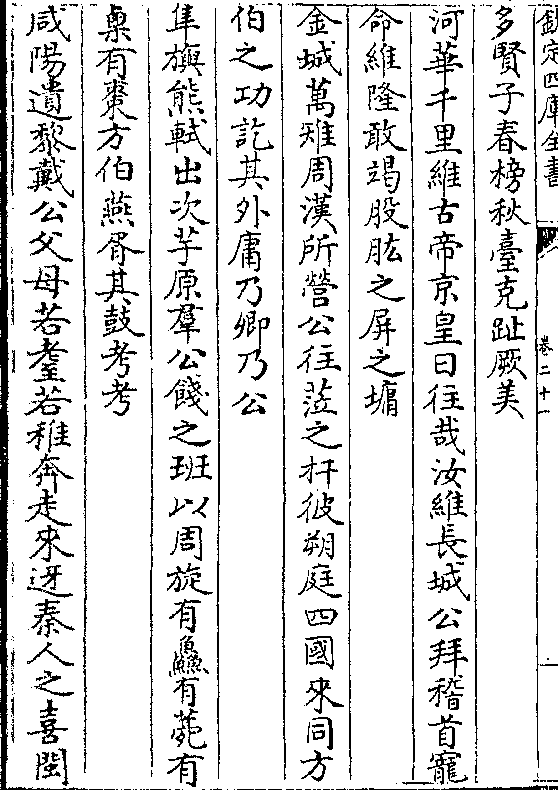 欽定四庫全書
卷二十一
多賢子春榜秋臺克趾厥美
河華千里維古帝京皇曰往哉汝維長城公拜稽首寵
命維隆敢竭股肱之屏之墉
金城萬雉周漢所營公往蒞之扞彼朔庭四國來同方
伯之功訖其外庸乃卿乃公
隼旟熊軾出次芋原羣公餞之班以周旋有鱻有薨有
㮚有棗方伯燕胥其鼓考考
咸陽遺黎戴公父母若耋若稚奔走來迓秦人之喜閩